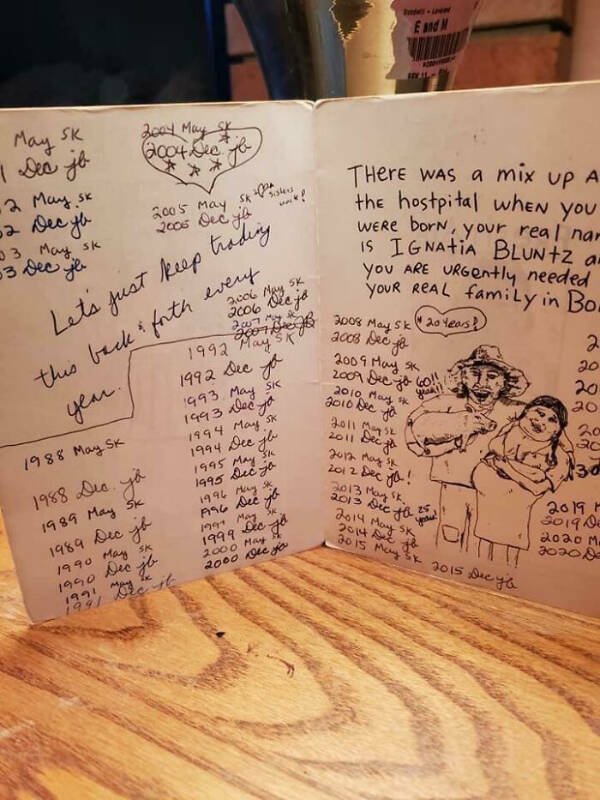 E and M
May SK
1 Dec jb
2 May SK
2 Dec jb
03 May SK
03 Dec jb
2004 May SK
2004 Dec jb
2005 May SK
2005 Dec jb
Let's just keep trading
this back & forth every
year.
2006 May SK
2006 Dec jb
2007 May SK
2007 Dec jb
1988 May SK
1988 Dec. jb
1989 May SK
1989 Dec jb
1990 May SK
1990 Dec jb
1991 May SK
1991 Dec jb
1992 May SK
1992 Dec jb
1993 May SK
1993 Dec jb
1994 May SK
1994 Dec jb
1995 May SK
1995 Dec jb
1996 May SK
1996 Dec jb
1999 May SK
1999 Dec jb
2000 May SK
2000 Dec jb
THERE WAS A mix up A
the hostpital wHEN you
WERE borN, your real nam
IS IGNatiA BLUNtZ a
YOU ARE URGENtly needed
YOUR REAL family in Bo
2008 May SK (20 years!)
2008 Dec jb
2009 May SK
2009 Dec jb
2010 May SK
2010 Dec jb
2011 May SK
2011 Dec jb
2012 May SK
2012 Dec jb!
2013 May SK
2013 Dec jb 25 years!
2014 May SK
2014 Dec jb
2015 May SK
2015 Dec jb
2
20
20
20
20
20
2019 M
2019 De
2020 Ma
2020 De